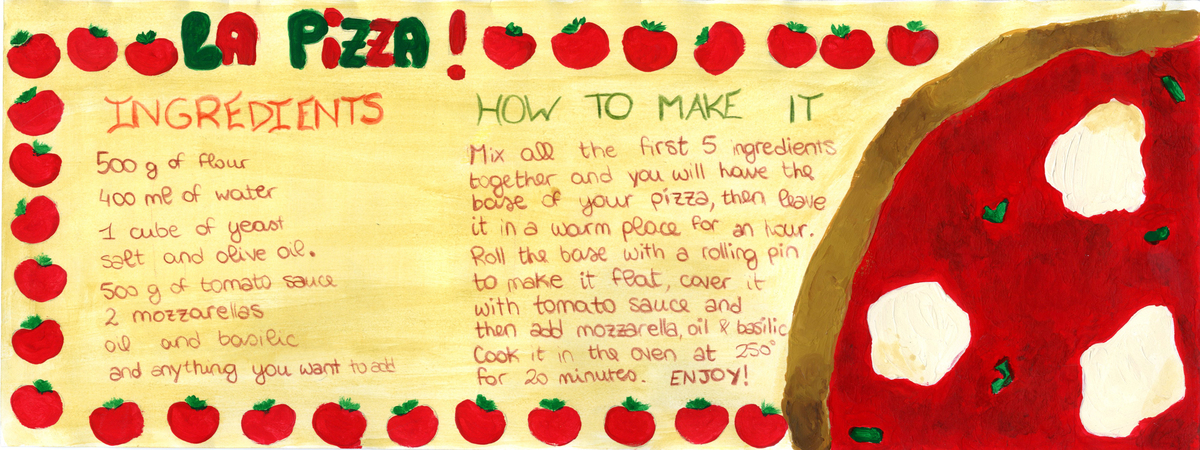 LA PIZZA!
INGREDIENTS
500 g of flour
400 ml of water
1 cube of yeast
salt and olive oil.
500 g of tomato sauce
2 mozzarellas
oil and basilic
and anything you want to add
HOW TO MAKE IT
Mix all the first 5 ingredients
together and you will have the
base of your pizza, then leave
it in a warm place for an hour.
Roll the base with a rolling pin
to make it flat, cover it
with tomato sauce and
then add mozzarella, oil & basilic
Cook it in the oven at 250°
for 20 minutes. ENJOY!